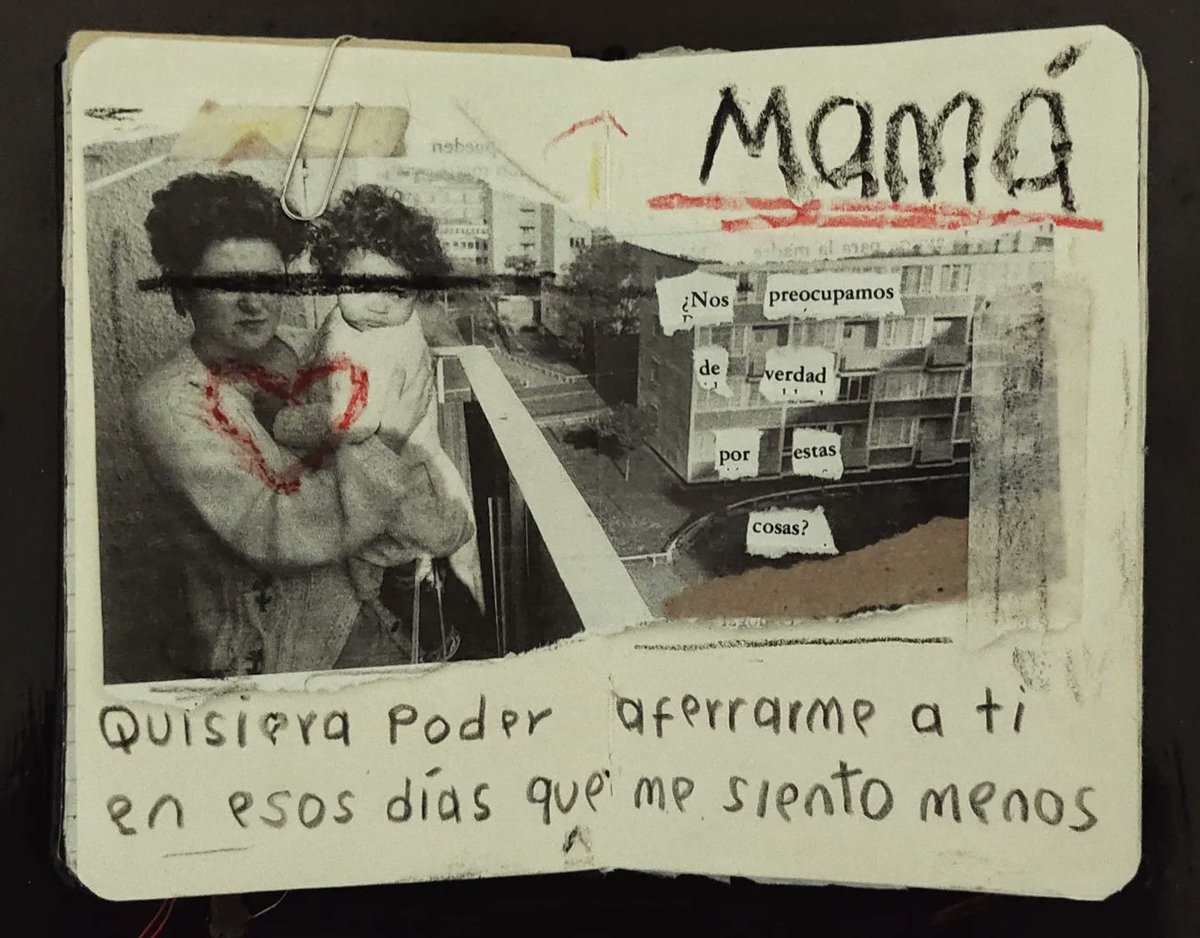 Mamá
¿Nos preocupamos
de verdad
por estas
cosas?
Quisiera Poder aferrarme a ti
en esos días que me siento menos